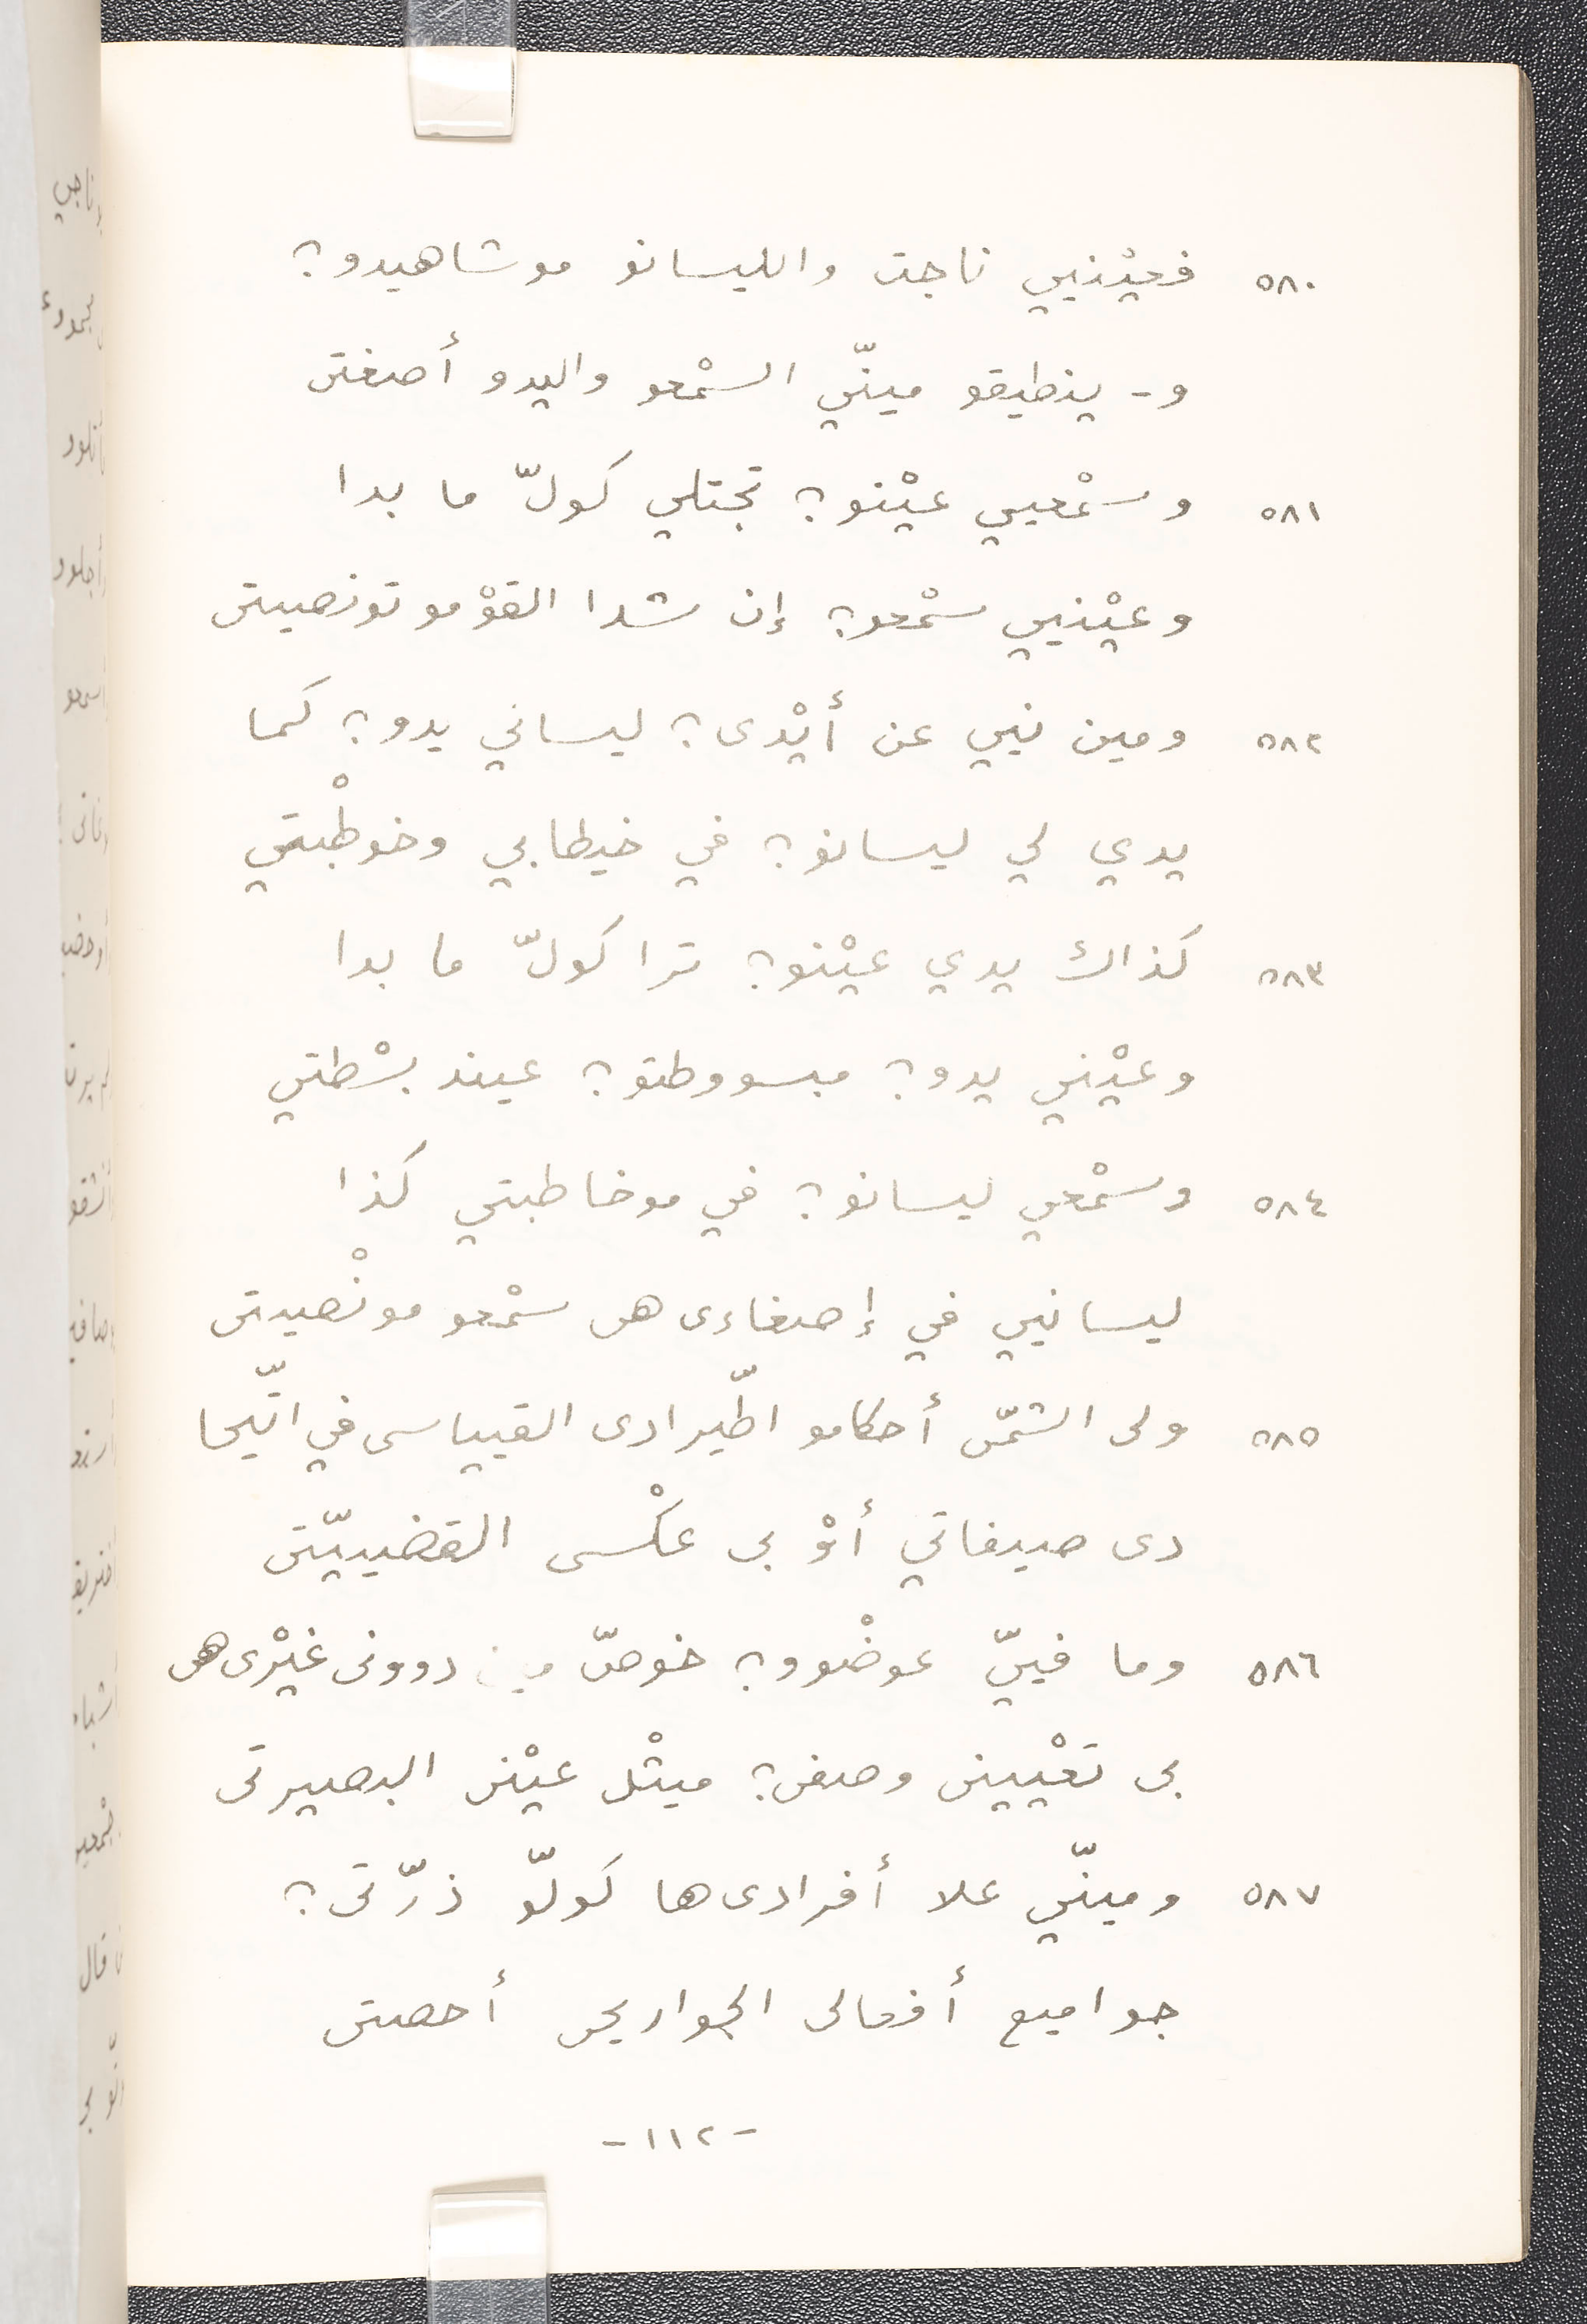 ٥٨٠ فعيْنيي ناجت والليسانو موشاهيدو؟
و- ينطيقو مينّي السمْعو واليدو أصغتى
٥٨١ وسمْعيي عيْنو؟ تجتلي كولّ ما بدا
وعيْنيي سمْعو؟ إن شدا القوْمو تونصيتى
٥٨٢ ومين نيي عن أيْدى؟ ليساني يدو؟ كما
يدي لي ليسانو؟ في خيطابي وخوطْبتي
٥٨٣ كذاك يدي عيْنو؟ ترا كولّ ما بدا
وعيْني يدو؟ مبسووطتو؟ عيند بسْطتي
٥٨٤ وسمْعي ليسانو؟ في موخاطبتي كذا
ليسانيي في إصغاءى هى سمْعو مونْصيتى
٥٨٥ ولى الشمّى أحكامو اطّيرادى القيياسى في اتّيحا
دى صيفاتي أوْ بى عكْسى القضيييّتى
٥٨٦ وما فييّ عوضْوو؟ خوصّ مين دوونى غيْرى هى
بى تعْييينى وصفى؟ ميثْل عيْنى البصييرتى
٥٨٧ ومينّي علا أفرادى ها كولّو ذرّتى؟
جواميع أفعالى الجواريحى أحصتى
-١١٢-